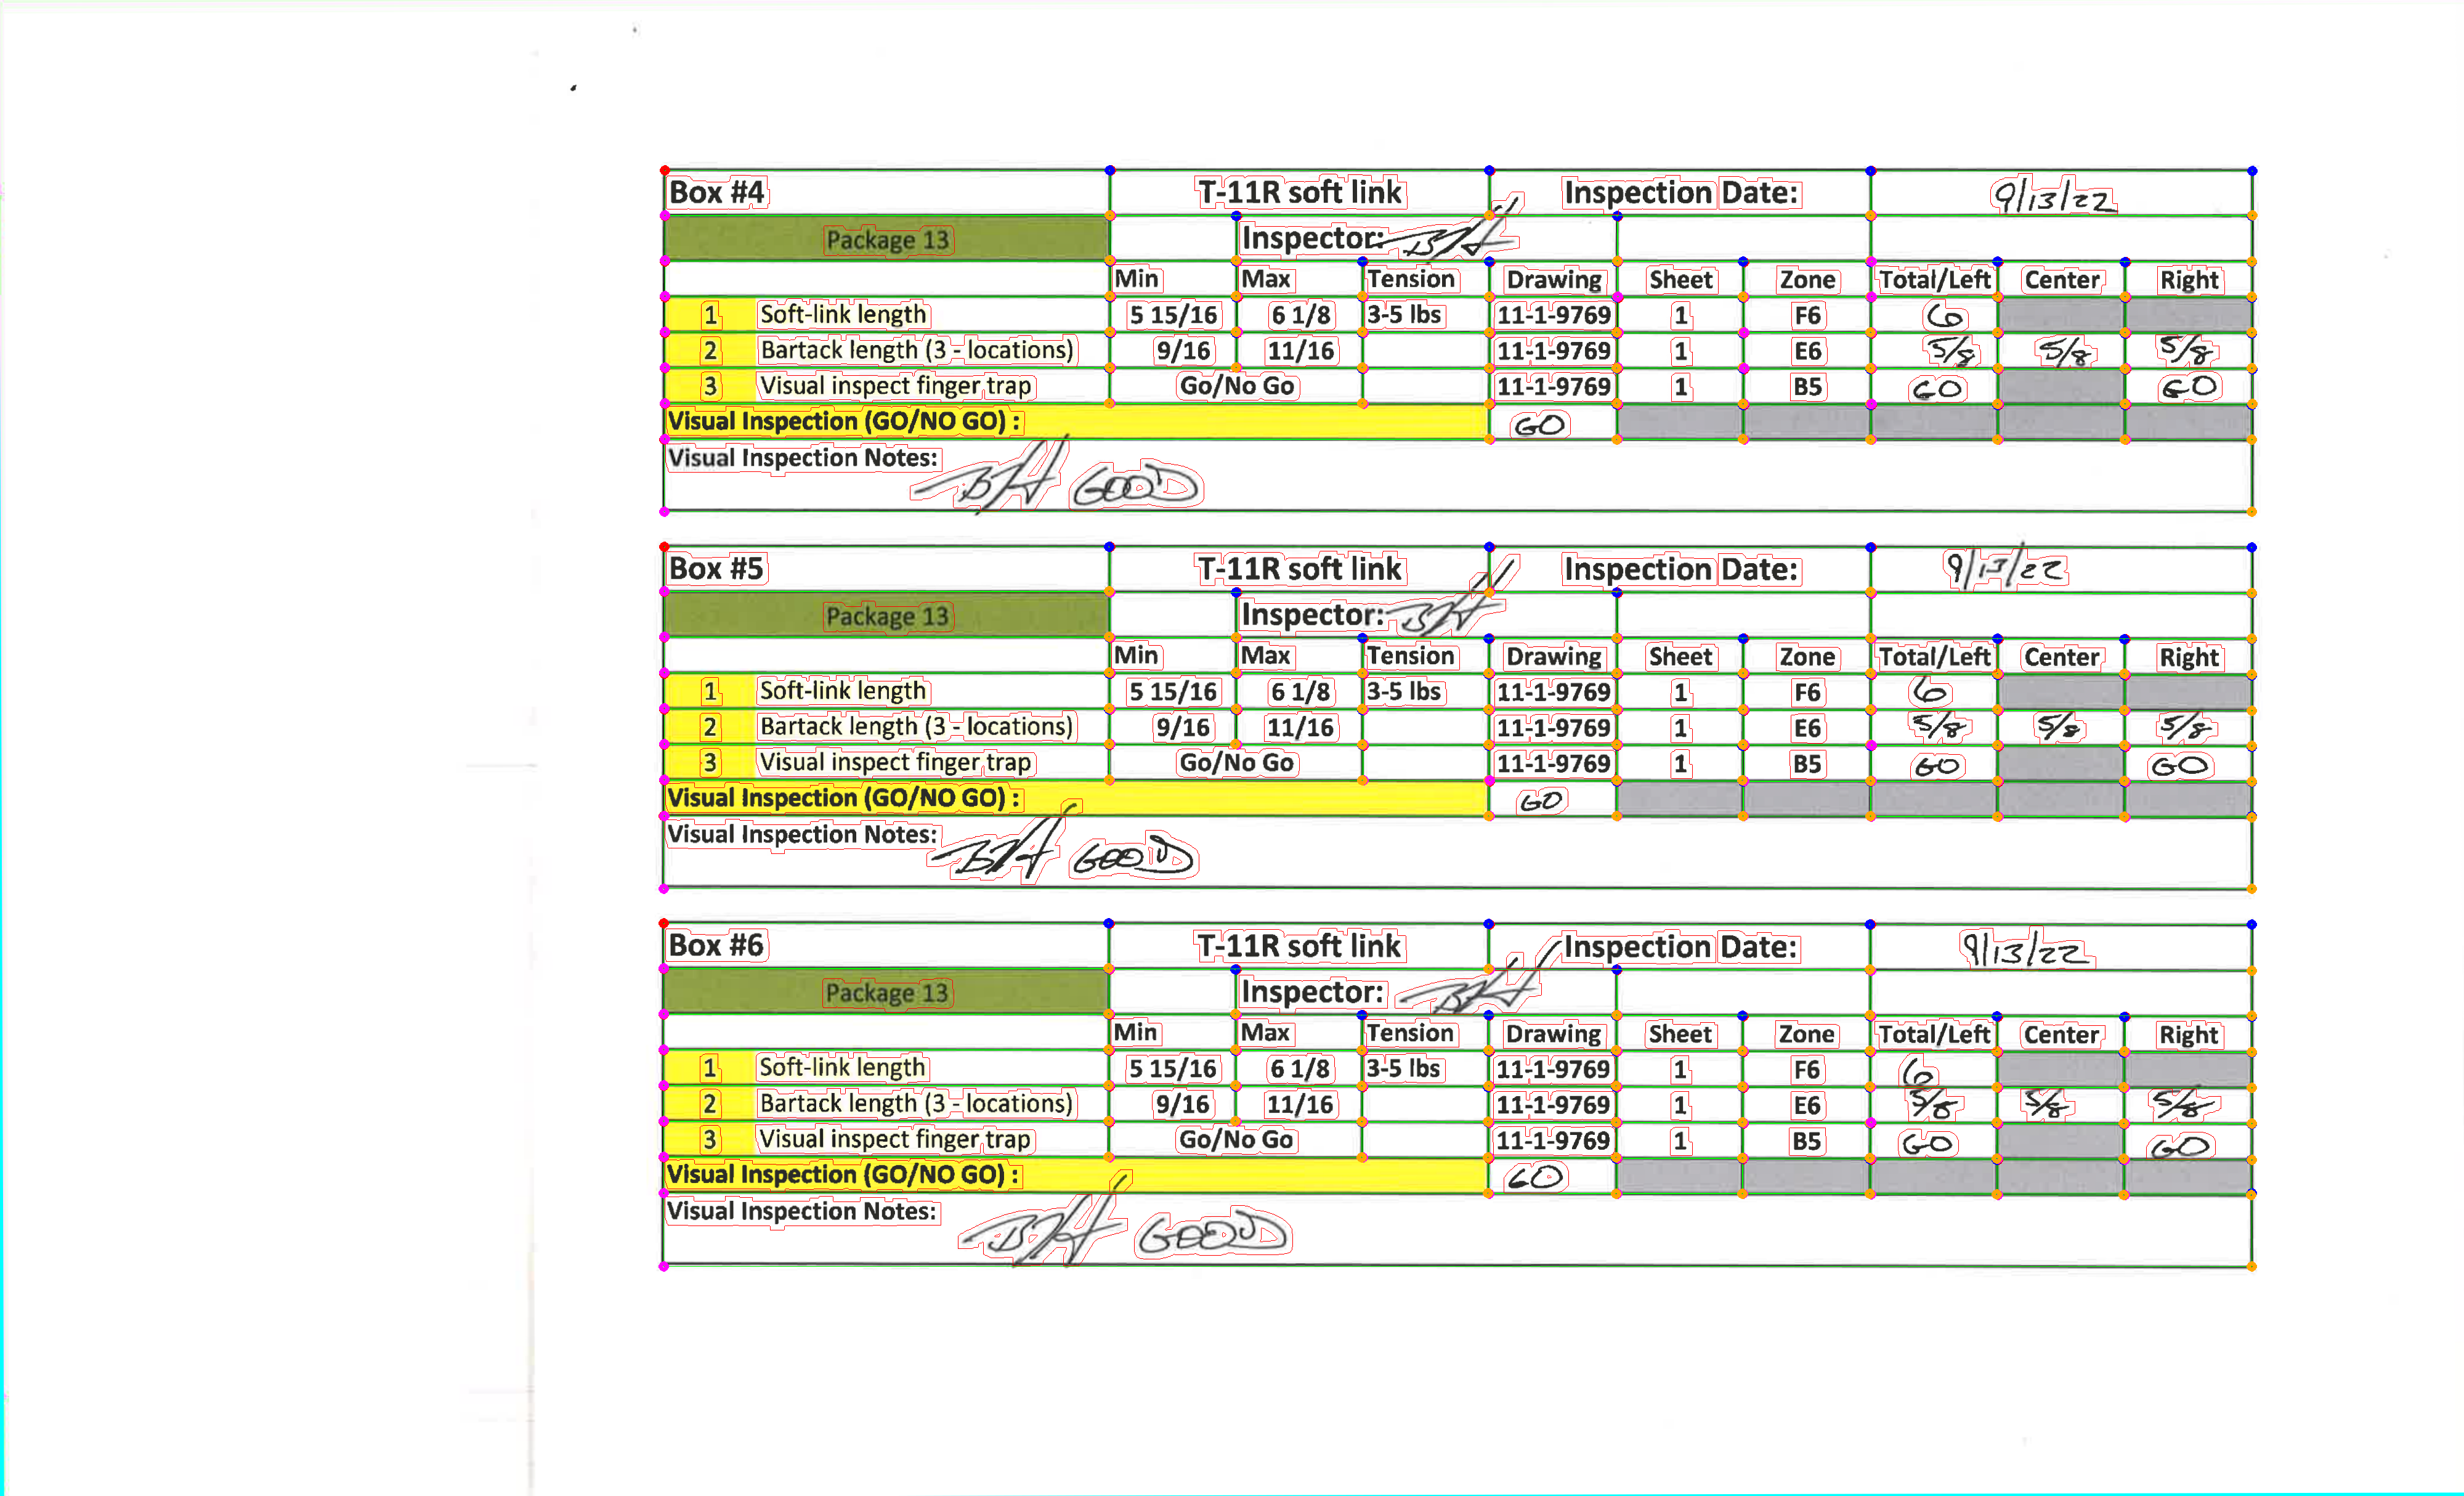 Box #4 T-11R soft link Inspection Date: 9/13/22
Package 13 Inspector:
Min Max Tension Drawing Sheet Zone Total/Left Center Right
1 Soft-link length 5 15/16 6 1/8 3-5 lbs 11-1-9769 1 F6 6
2 Bartack length (3 - locations) 9/16 11/16 11-1-9769 1 E6 5/8 5/8 5/8
3 Visual inspect finger trap Go/No Go 11-1-9769 1 B5 GO GO
Visual Inspection (GO/NO GO) : GO
Visual Inspection Notes: GOOD
Box #5 T-11R soft link Inspection Date: 9/13/22
Package 13 Inspector:
Min Max Tension Drawing Sheet Zone Total/Left Center Right
1 Soft-link length 5 15/16 6 1/8 3-5 lbs 11-1-9769 1 F6 6
2 Bartack length (3 - locations) 9/16 11/16 11-1-9769 1 E6 5/8 5/8 5/8
3 Visual inspect finger trap Go/No Go 11-1-9769 1 B5 GO GO
Visual Inspection (GO/NO GO) : GO
Visual Inspection Notes: GOOD
Box #6 T-11R soft link Inspection Date: 9/13/22
Package 13 Inspector:
Min Max Tension Drawing Sheet Zone Total/Left Center Right
1 Soft-link length 5 15/16 6 1/8 3-5 lbs 11-1-9769 1 F6 6
2 Bartack length (3 - locations) 9/16 11/16 11-1-9769 1 E6 5/8 5/8 5/8
3 Visual inspect finger trap Go/No Go 11-1-9769 1 B5 GO GO
Visual Inspection (GO/NO GO) : GO
Visual Inspection Notes: GOOD